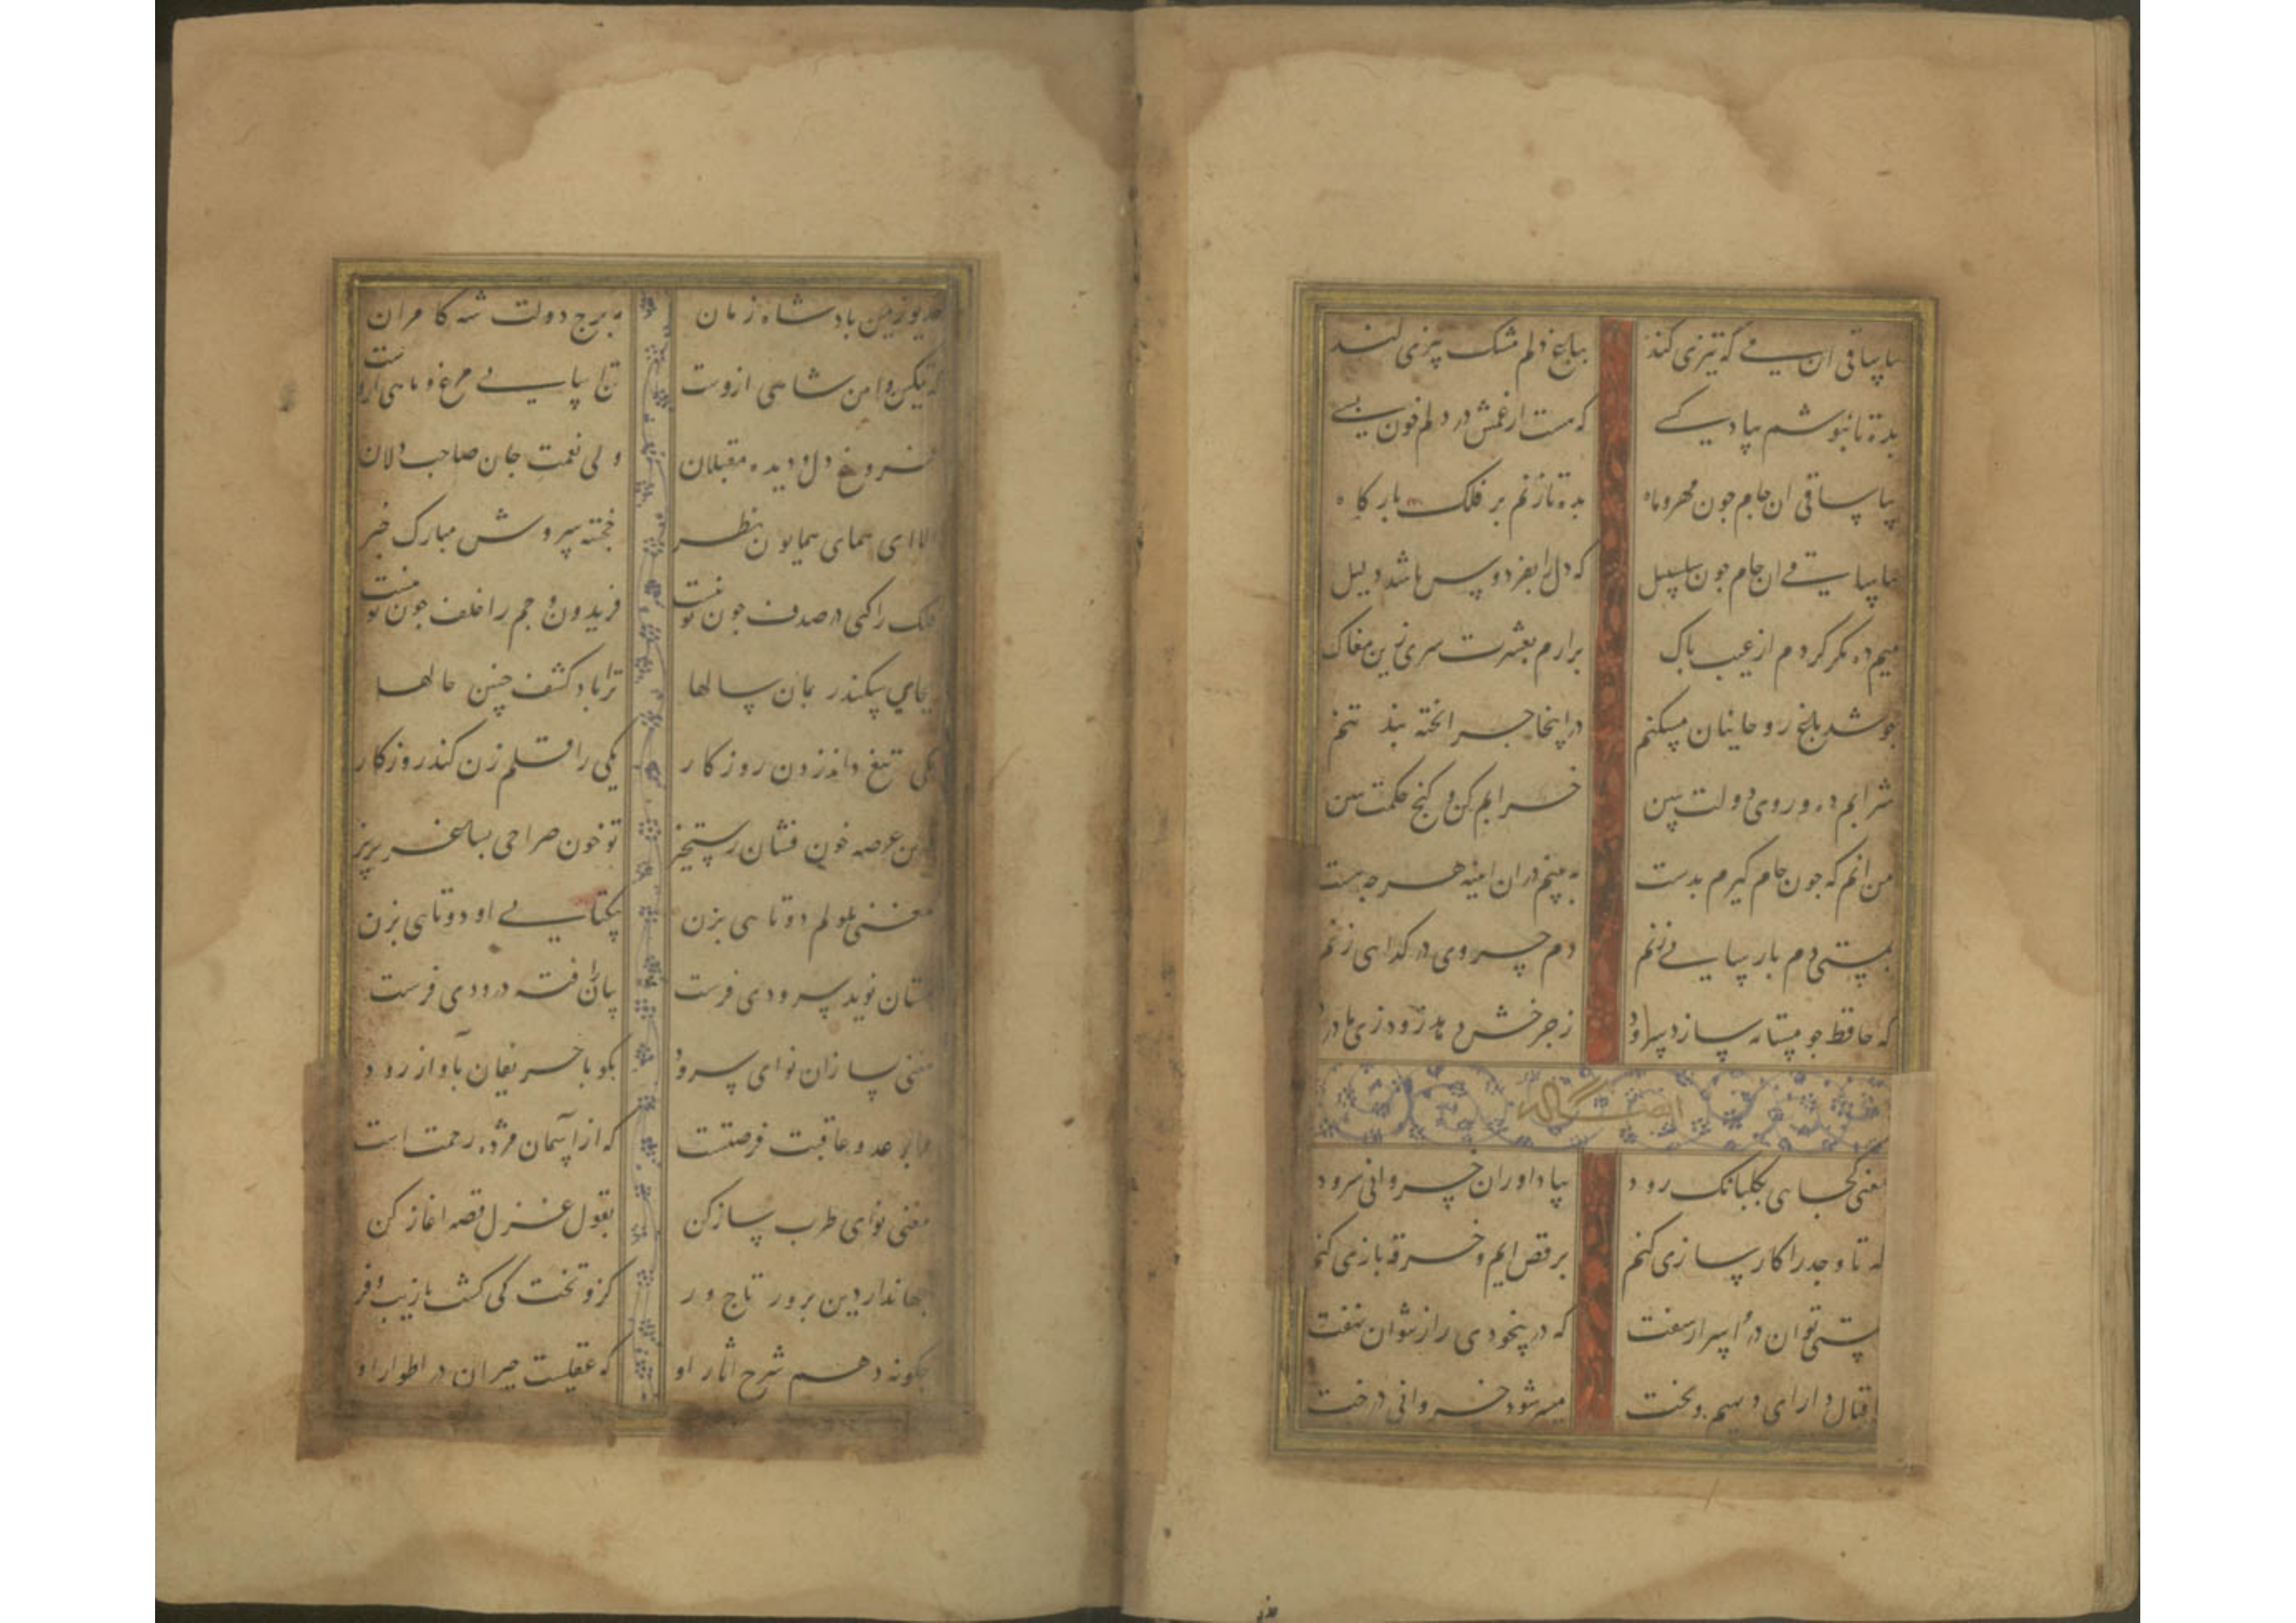 بیا ساقی ان می که تیزی کند بباغ دلم مشک بیزی کند
بده تا بنوشم بیاد کسی که هست از غمش در دلم خون بسی
بیا ساقی ان جام جون مهر و ماه بده تا زنم بر فلک بارکاه
بیا ساقی ان جام جون سلسبیل که دل را بفردوس باشد دلیل
میم ده مکر کردم از عیب باک برارم بعشرت سری زین مغاک
جو شد باغ روحانیان مسکنم در اینجا جرا تخته بند تنم
شرابم ده و روی دولت ببین خرابم کن و کنج حکمت ببین
من انم که جون جام کیرم بدست ببینم دران اینه هرجه هست
بمستی دم بارسایی زنم دم خسروی در کدایی زنم
که حافظ جو مستانه سازد سرود ز جرخش دهد زود زی
ایضا له
مغنی کجایی بکلبانک رود بیاد اور ان خسروانی سرود
که تا وجد را کارسازی کنم برقص ایم و خرقه بازی کنم
بمستی توان در اسرار سفت که در بیخودی راز نتوان نهفت
اقبال دارای دیهیم و بخت میسر شود خسروانی درخت
خدیو زمین بادشاه زمان مه برج دولت شه کامران
که تمکین و امن شاهی ازوست تن اسایی مرغ و ماهی ازوست
فروغ دل و دیده مقبلان ولی نعمت جان صاحب دلان
الا ای همای همایون نظر خجسته سروش مبارک خبر
فلک را کهی در صدف جون تو نیست فریدون و جم را خلف جون تو نیست
بجای سکندر بمان سالها ترا باد کشف جنین حالها
یکی تیغ داند زدن روز کار یکی را قلم زن کند روزکار
درین عرصه خون فشان رستخیز تو خون صراحی بساغر بریز
مغنی ملولم دوتایی بزن بیکتایی او دوتایی بزن
بمستان نوید سرودی فرست بیاران رفته درودی فرست
مغنی بساز ان نوای سرود بکو با حریفان باواز رود
مرا بر عدو عاقبت فرصتست که از اسمان مژده رحمت است
مغنی نوای طرب ساز کن بقول غزل قصه اغاز کن
جهاندار دین برور تاج ور کزو تخت کی کشت با زیب و فر
جکونه دهم شرح اثار او که عقلست حیران در اطوار او